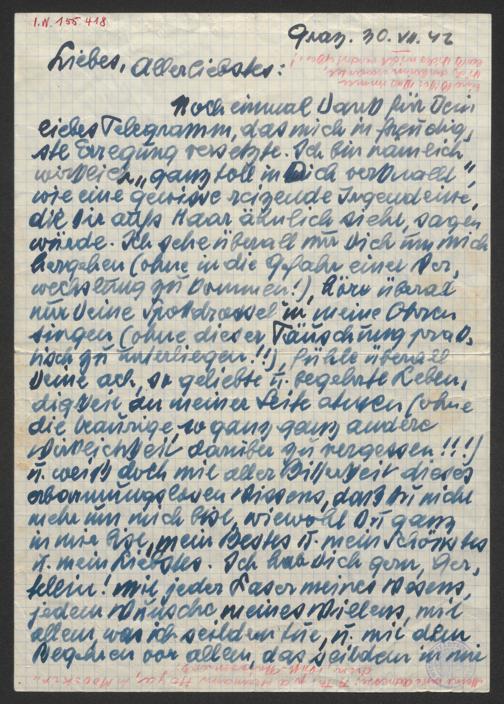 I.N. 155.418
Graz. 30. VII. 42
Liebes, Allerliebstes:
Noch einmal Dank für Dein
liebes Telegramm, das mich in freudig-
ste Erregung versetzte. Ich bin nämlich
wirklich „ganz toll in Dich verknallt",
wie eine gewisse reizende Irgendeine,
die Dir aufs Haar ähnlich sieht, sagen
würde. Ich sehe überall nur Dich um mich
hergehen (ohne in die Gefahr einer Ver-
wechslung zu kommen!), höre überall
nur Deine Spottdrossel in meine Ohren
singen (ohne dieser Täuschung prak-
tisch zu unterliegen!!), fühle überall
Deine ach, so geliebte u. begehrte Leben-
digkeit an meiner Seite atmen (ohne
die traurige, so ganz ganz andere
Wirklichkeit darüber zu vergessen!!!)
u. weiß doch mit aller Bitterkeit dieses
erbarmungslosen Wissens, daß Du nicht
mehr um mich bist, wiewohl Du ganz
in mir bist, mein Bestes u. mein Schönstes
u. mein Liebstes. Ich hab Dich gern, Ger-
tellein! mit jeder Faser meines Wesens,
jedem Wunsche meines Willens, mit
allem, was ich seitdem tue, u. mit dem
Begehren vor allem, das seitdem in mir